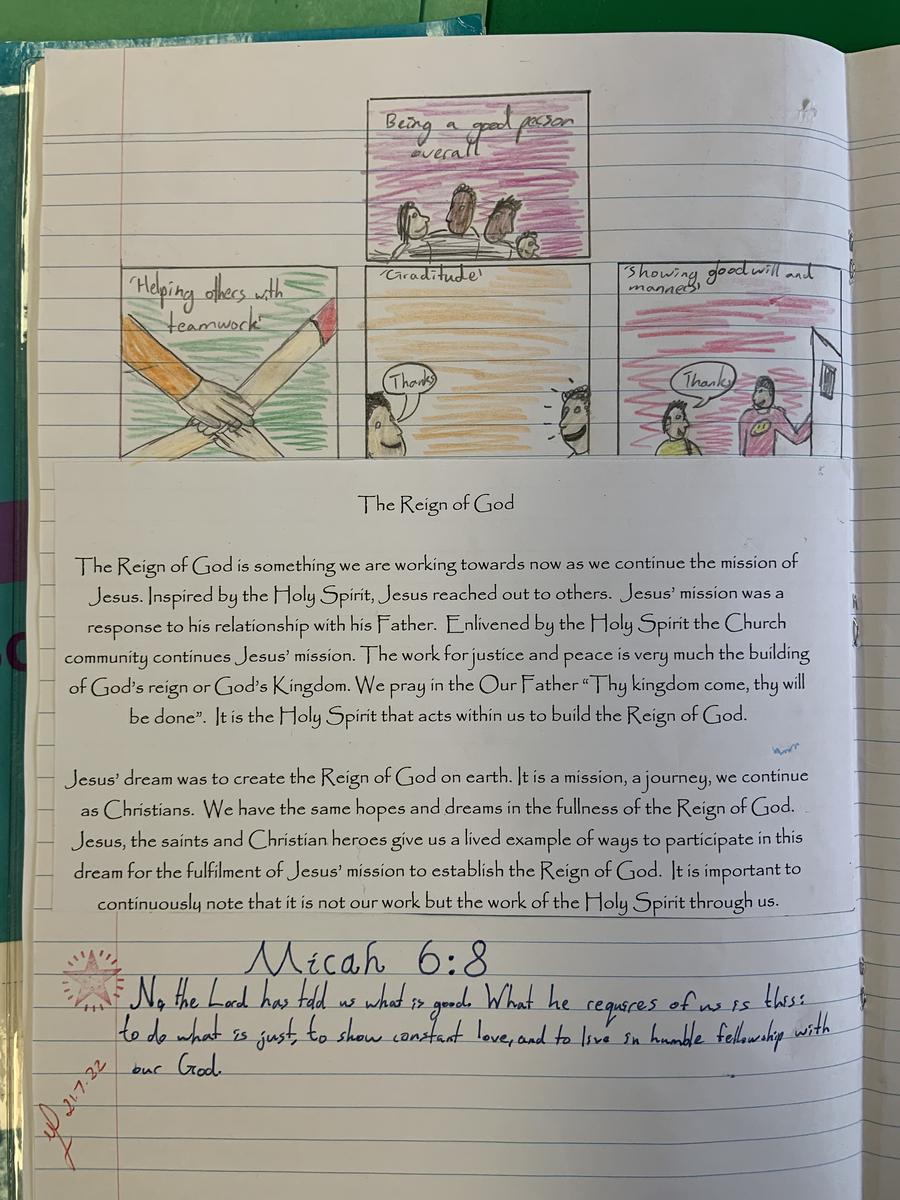 Being a good person
overall
'Helping others with
teamwork'
'Graditude'
Thanks
'showing goodwill and
manners'
Thanks
The Reign of God
The Reign of God is something we are working towards now as we continue the mission of
Jesus. Inspired by the Holy Spirit, Jesus reached out to others.  Jesus' mission was a
response to his relationship with his Father.  Enlivened by the Holy Spirit the Church
community continues Jesus' mission. The work for justice and peace is very much the building
of God's reign or God's Kingdom. We pray in the Our Father "Thy kingdom come, thy will
be done".  It is the Holy Spirit that acts within us to build the Reign of God.
Jesus' dream was to create the Reign of God on earth. It is a mission, a journey, we continue
as Christians.  We have the same hopes and dreams in the fullness of the Reign of God.
Jesus, the saints and Christian heroes give us a lived example of ways to participate in this
dream for the fulfilment of Jesus' mission to establish the Reign of God.  It is important to
continuously note that it is not our work but the work of the Holy Spirit through us.
Micah 6:8
No, the Lord has told us what is good. What he requires of us is this:
to do what is just, to show constant love, and to live in humble fellowship with
our God.
21.7.22